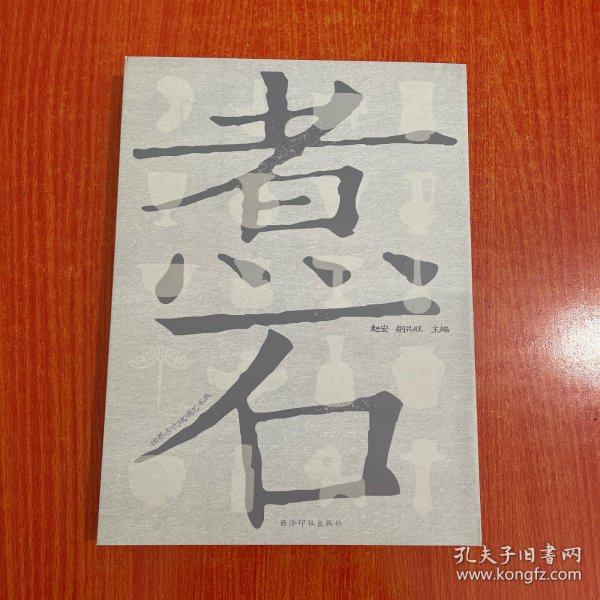 煮石
赵宏 胡兴旺 主编
世界古代玻璃艺术展
西泠印社出版社
孔夫子旧书网
www.kongfz.com